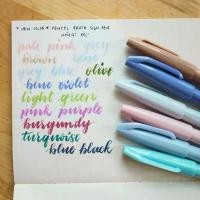 * NEW COLOR * PENTEL BRUSH SIGN PEN
pale pink grey
brown blue
grey blue olive
blue violet
light green
pink purple
burgundy
turquoise
blue black